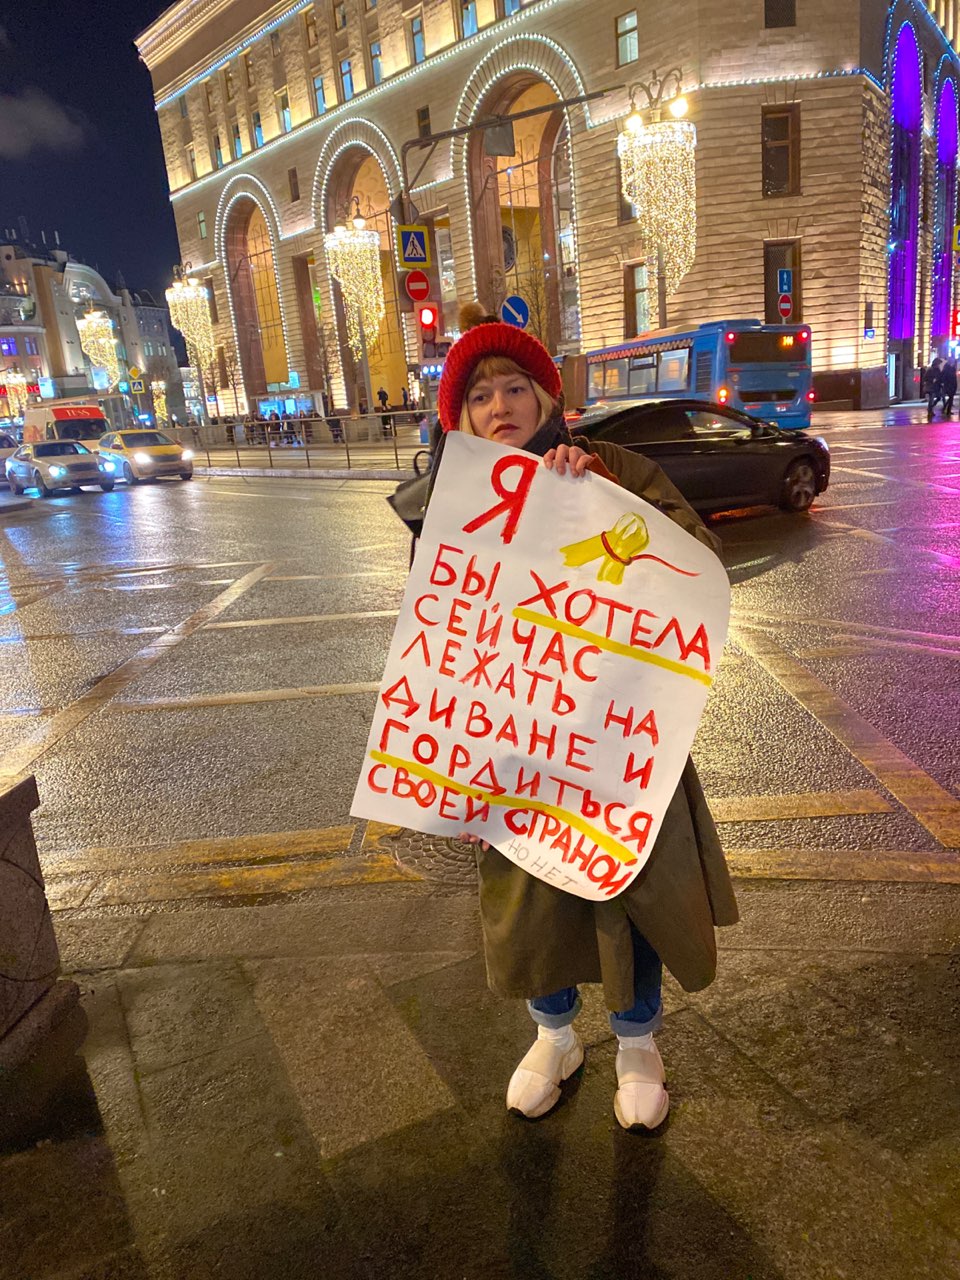 Я
БЫ ХОТЕЛА
СЕЙЧАС
ЛЕЖАТЬ НА
ДИВАНЕ И
ГОРДИТЬСЯ
СВОЕЙ СТРАНОЙ
НО НЕТ